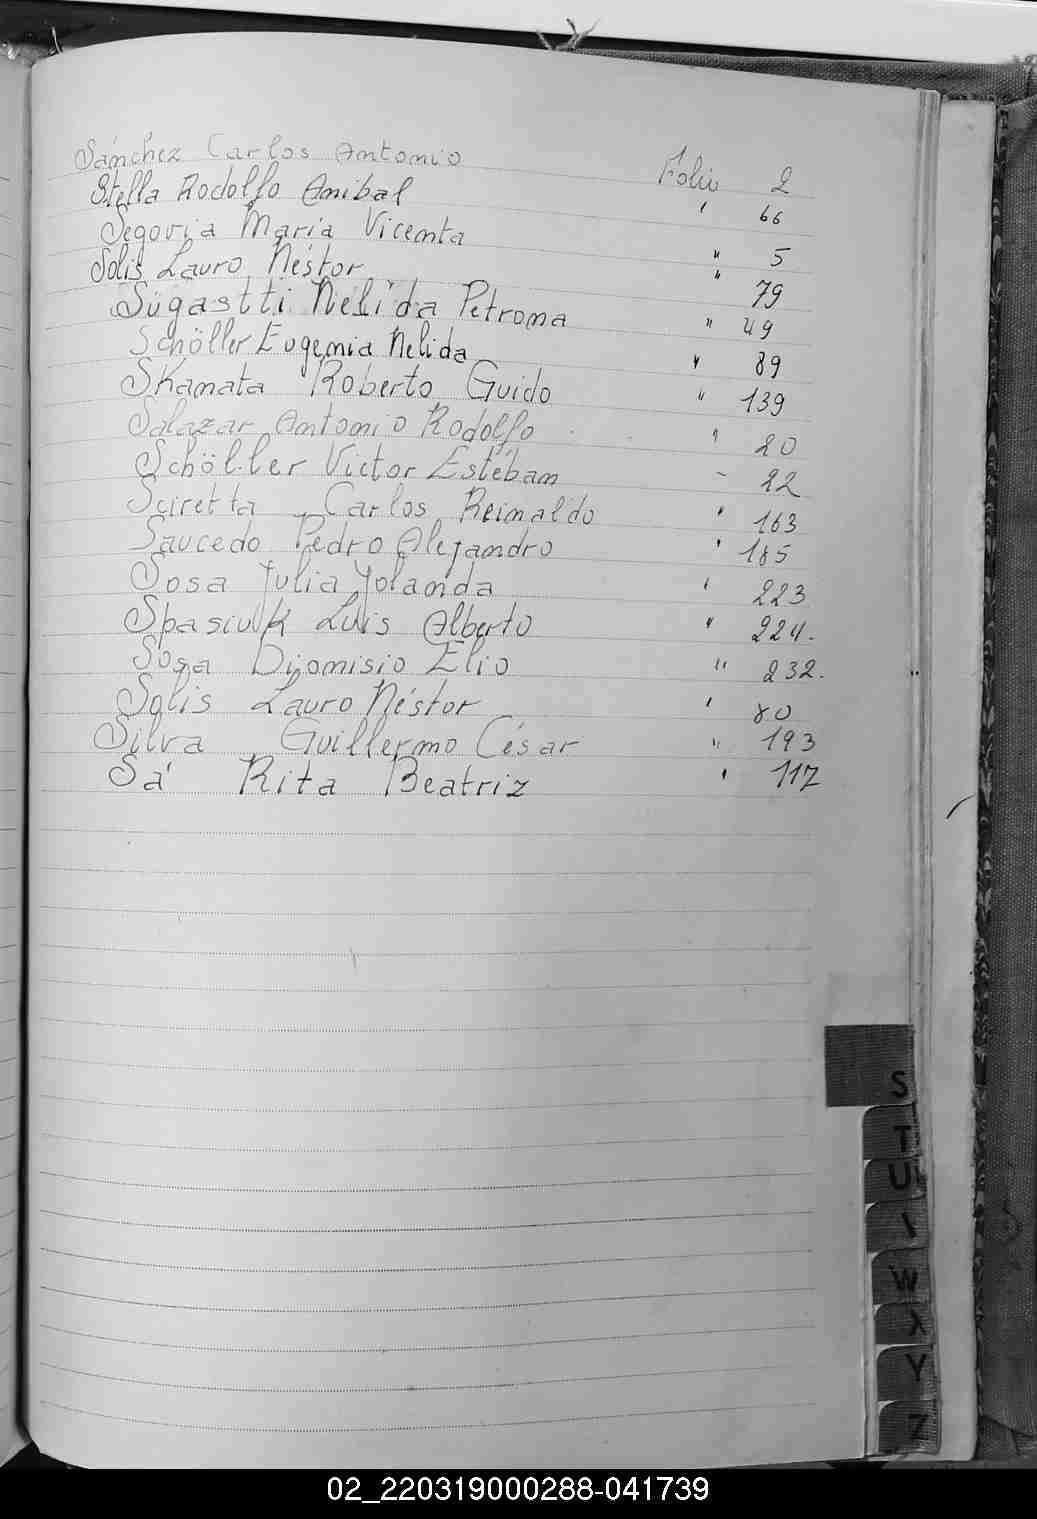 Sánchez Carlos Antonio Folio 2
Stella Rodolfo Anibal ' 66
Segovia Maria Vicenta " 5
Solis Lauro Néstor " 79
Sugastti Nelida Petrona " 49
Schöller Eugenia Nelida " 89
Skanata Roberto Guido " 139
Salazar Antonio Rodolfo " 20
Schöller Victor Estéban - 22
Sciretta Carlos Reinaldo " 163
Saucedo Pedro Alejandro " 185
Sosa Julia Yolanda " 223
Spasiuk Luis Alberto " 224.
Sosa Dionisio Elio " 232.
Solis Lauro Néstor ' 80
Silva Guillermo César " 193
Sá Rita Beatriz ' 117
S
T
U
W
X
Y
Z
02_220319000288-041739